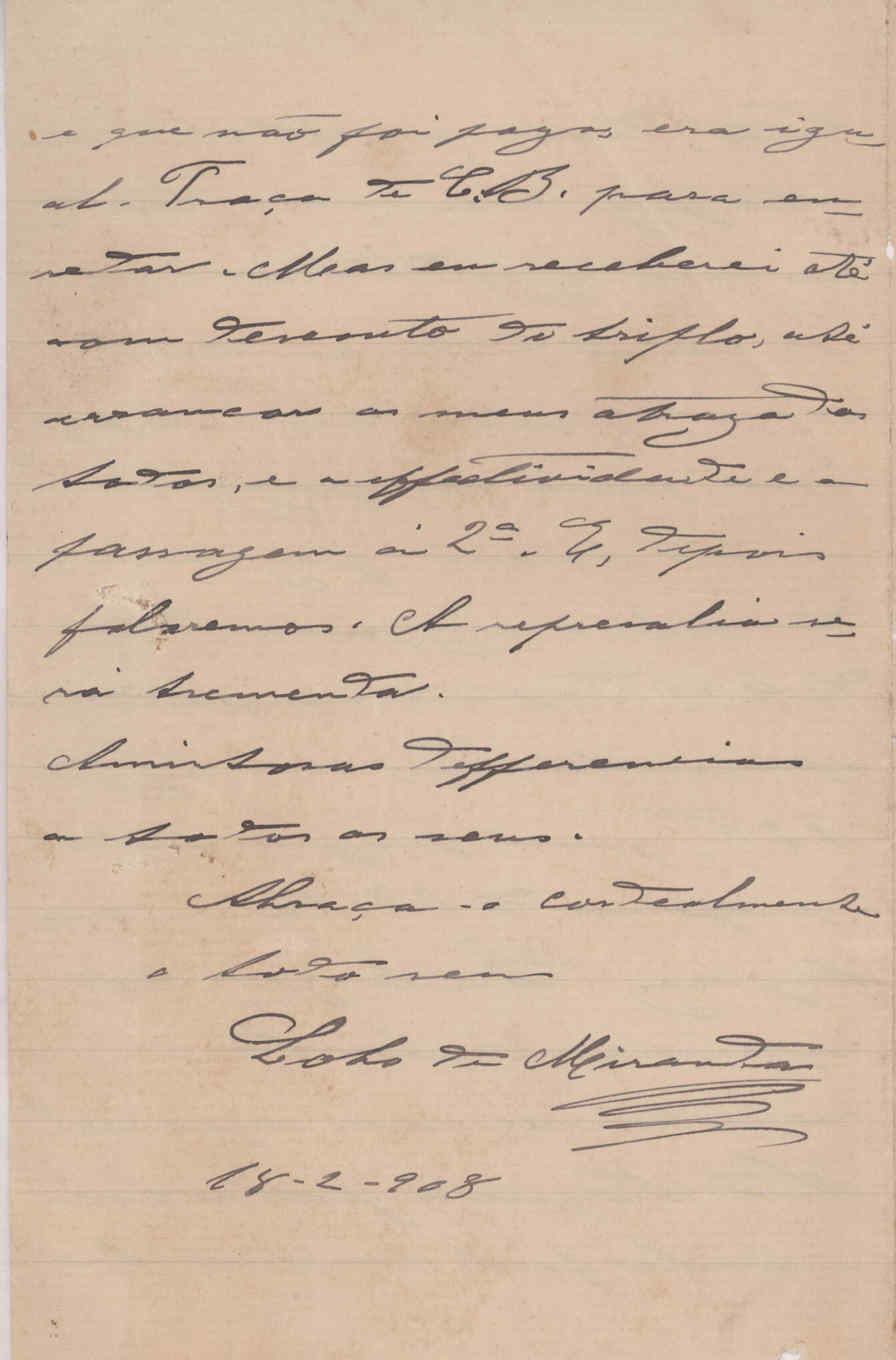 e que não foi pago, era igu-
al. Traça de C.B. para en-
redar. Mas eu receberei até
com desconto do triplo, até
arrancar os meus atrazados
todos, e a effectividade e a
passagem á 2ª. E, depois
falaremos. A represalia se-
rá tremenda.
Amistosas defferencias
a todos os seus.
Abraça-o cordealmente
o todo seu
Lobo de Miranda
18-2-908